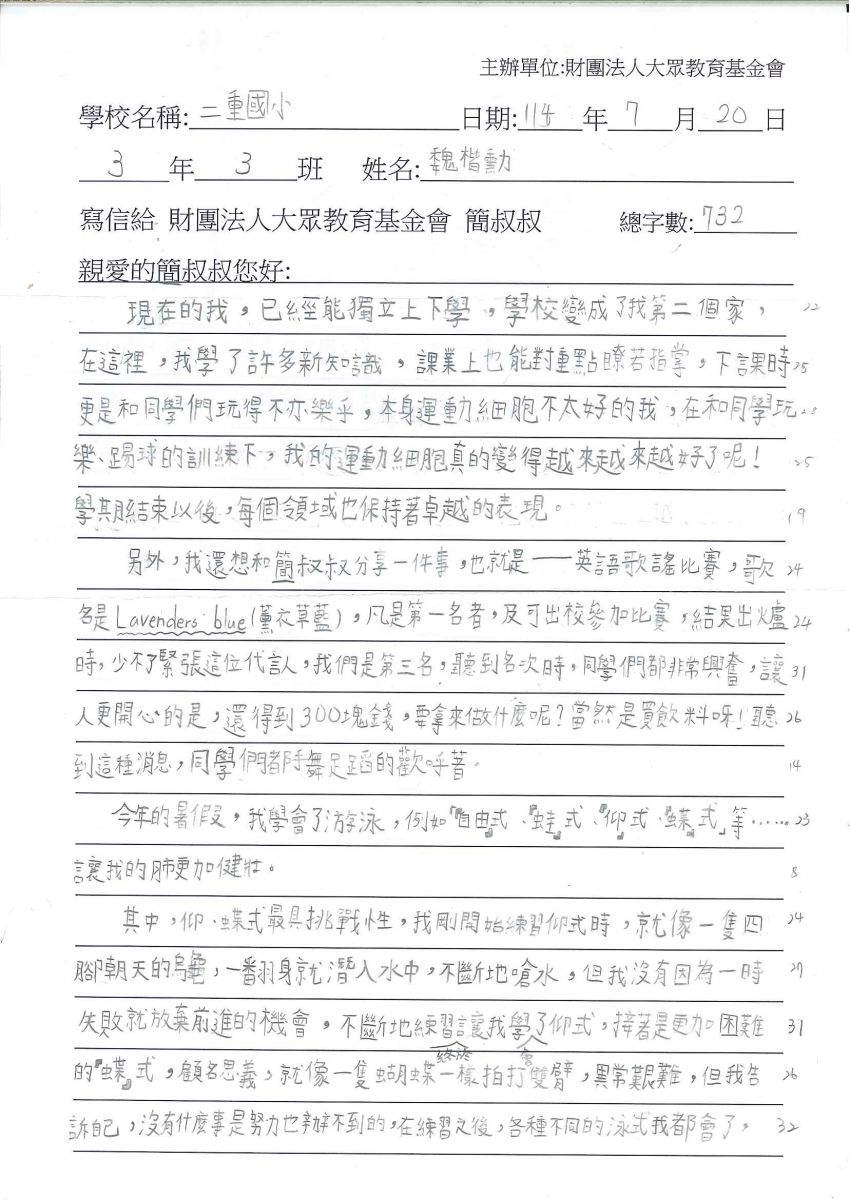 主辦單位:財團法人大眾教育基金會
學校名稱:二重國小 日期:114年7月20日
3年3班 姓名:魏楷勳
寫信給 財團法人大眾教育基金會 簡叔叔 總字數:732
親愛的簡叔叔您好:
現在的我,已經能獨立上下學,學校變成了我第二個家, 22
在這裡,我學了許多新知識,課業上也能對重點瞭若指掌,下課時 25
更是和同學們玩得不亦樂乎,本身運動細胞不太好的我,在和同學玩 28
樂、踢球的訓練下,我的運動細胞真的變得越來越來越好了呢! 25
學期結束以後,每個領域也保持著卓越的表現。 19
另外,我還想和簡叔叔分享一件事,也就是——英語歌謠比賽,歌 24
名是Lavenders blue(薰衣草藍),凡是第一名者,及可出校參加比賽,結果出爐 24
時,少不了緊張這位代言人,我們是第三名,聽到名次時,同學們都非常興奮,讓 31
人更開心的是,還得到300塊錢,要拿來做什麼呢?當然是買飲料呀!聽 26
到這種消息,同學們都手舞足蹈的歡呼著。 14
今年的暑假,我學會了游泳,例如「『自由』式、『蛙』式、『仰』式、『蝶』式」等…… 23
讓我的肺更加健壯。 8
其中,仰、蝶式最具挑戰性,我剛開始練習仰式時,就像一隻四 24
腳朝天的烏龜,一翻身就潛入水中,不斷地嗆水,但我沒有因為一時 27
失敗就放棄前進的機會,不斷地練習終於讓我學會了仰式,接著是更加困難 31
的『蝶』式,顧名思義,就像一隻蝴蝶一樣拍打雙臂,異常艱難,但我告 26
訴自己,沒有什麼事是努力也辦不到的,在練習之後,各種不同的泳式我都會了, 32